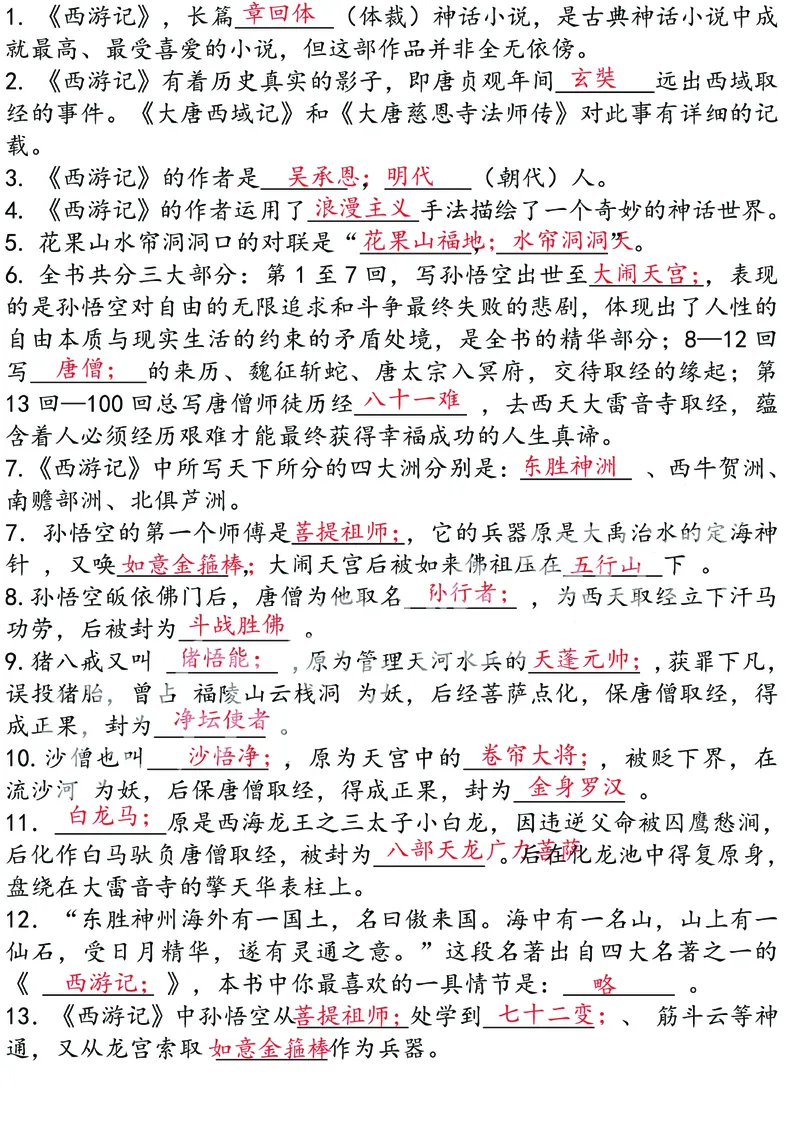 1. 《西游记》，长篇 章回体 （体裁）神话小说，是古典神话小说中成
就最高、最受喜爱的小说，但这部作品并非全无依傍。
2. 《西游记》有着历史真实的影子，即唐贞观年间 玄奘 远出西域取
经的事件。《大唐西域记》和《大唐慈恩寺法师传》对此事有详细的记
载。
3. 《西游记》的作者是 吴承恩； 明代 （朝代）人。
4. 《西游记》的作者运用了 浪漫主义 手法描绘了一个奇妙的神话世界。
5. 花果山水帘洞洞口的对联是“花果山福地； 水帘洞洞天”。
6. 全书共分三大部分：第 1 至 7 回，写孙悟空出世至大闹天宫；，表现
的是孙悟空对自由的无限追求和斗争最终失败的悲剧，体现出了人性的
自由本质与现实生活的约束的矛盾处境，是全书的精华部分；8—12 回
写 唐僧； 的来历、魏征斩蛇、唐太宗入冥府，交待取经的缘起；第
13 回—100 回总写唐僧师徒历经 八十一难 ，去西天大雷音寺取经，蕴
含着人必须经历艰难才能最终获得幸福成功的人生真谛。
7.《西游记》中所写天下所分的四大洲分别是：东胜神洲 、西牛贺洲、
南赡部洲、北俱芦洲。
7. 孙悟空的第一个师傅是菩提祖师；，它的兵器原是大禹治水的定海神
针 ，又唤 如意金箍棒，；大闹天宫后被如来佛祖压在 五行山 下 。
8.孙悟空皈依佛门后，唐僧为他取名 孙行者； ，为西天取经立下汗马
功劳，后被封为 斗战胜佛 。
9.猪八戒又叫 猪悟能； ,原为管理天河水兵的天蓬元帅；,获罪下凡，
误投猪胎，曾占 福陵山云栈洞 为妖，后经菩萨点化，保唐僧取经，得
成正果，封为 净坛使者 。
10.沙僧也叫 沙悟净； ，原为天宫中的 卷帘大将； ，被贬下界，在
流沙河 为妖，后保唐僧取经，得成正果，封为 金身罗汉 。
11. 白龙马； 原是西海龙王之三太子小白龙，因违逆父命被囚鹰愁涧，
后化作白马驮负唐僧取经，被封为 八部天龙广力菩萨 。后在化龙池中得复原身，
盘绕在大雷音寺的擎天华表柱上。
12. “东胜神州海外有一国土，名曰傲来国。海中有一名山，山上有一
仙石，受日月精华，遂有灵通之意。”这段名著出自四大名著之一的
《 西游记； 》，本书中你最喜欢的一具情节是： 略 。
13. 《西游记》中孙悟空从菩提祖师；处学到 七十二变；、 筋斗云等神
通，又从龙宫索取 如意金箍棒作为兵器。